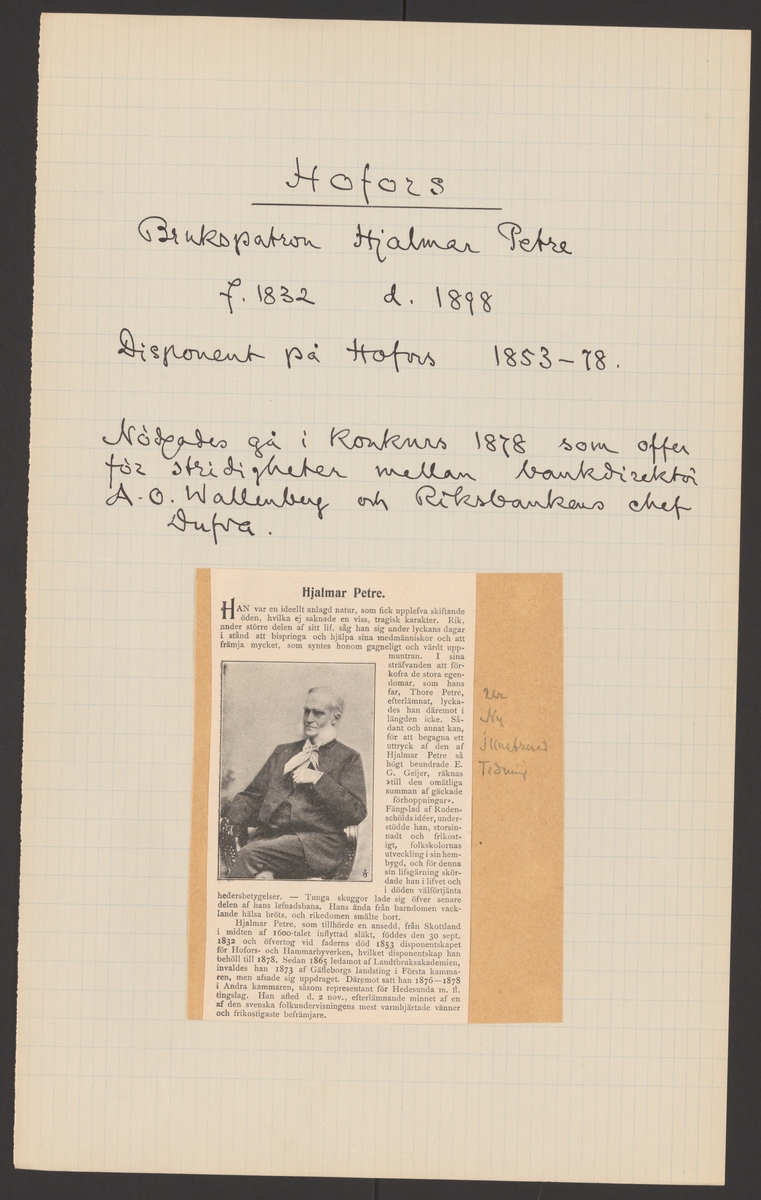 Hofors
Brukspatron Hjalmar Petre
f. 1832 d. 1898
Disponent på Hofors 1853–78.
Nödgades gå i konkurs 1878 som offer
för stridigheter mellan bankdirektör
A.O. Wallenberg och Riksbankens chef
Dufva.
Hjalmar Petre.
HAN var en ideellt anlagd natur, som fick upplefva skiftande
öden, hvilka ej saknade en viss, tragisk karakter. Rik,
under större delen af sitt lif, såg han sig under lyckans dagar
i stånd att bispringa och hjälpa sina medmänniskor och att
främja mycket, som syntes honom gagneligt och värdt upp-
muntran. I sina
sträfvanden att för-
kofra de stora egen-
domar, som hans
far, Thore Petre,
efterlämnat, lycka-
des han däremot i
längden icke. Så-
dant och annat kan,
för att begagna ett
uttryck af den af
Hjalmar Petre så
högt beundrade E.
G. Geijer, räknas
»till den omätliga
summan af gäckade
förhoppningar».
Fängslad af Ruden-
schölds idéer, under-
stödde han, storsin-
nadt och frikost-
igt, folkskolornas
utveckling i sin hem-
bygd, och för denna
sin lifsgärning skör-
dade han i lifvet och
i döden välförtjänta
hedersbetygelser. — Tunga skuggor lade sig öfver senare
delen af hans lefnadsbana. Hans ända från barndomen vack-
lande hälsa bröts, och rikedomen smälte bort.
Hjalmar Petre, som tillhörde en ansedd, från Skottland
i midten af 1600-talet inflyttad släkt, föddes den 30 sept.
1832 och öfvertog vid faderns död 1853 disponentskapet
för Hofors- och Hammarbyverken, hvilket disponentskap han
behöll till 1878. Sedan 1865 ledamot af Landtbruksakademien,
invaldes han 1873 af Gäfleborgs landsting i Första kamma-
ren, men afsade sig uppdraget. Däremot satt han 1876—1878
i Andra kammaren, såsom representant för Hedesunda m. fl.
tingslag. Han afled d. 2 nov., efterlämnande minnet af en
af den svenska folkundervisningens mest varmhjärtade vänner
och frikostigaste befrämjare.
Ur
Ny
illustrerad
Tidning